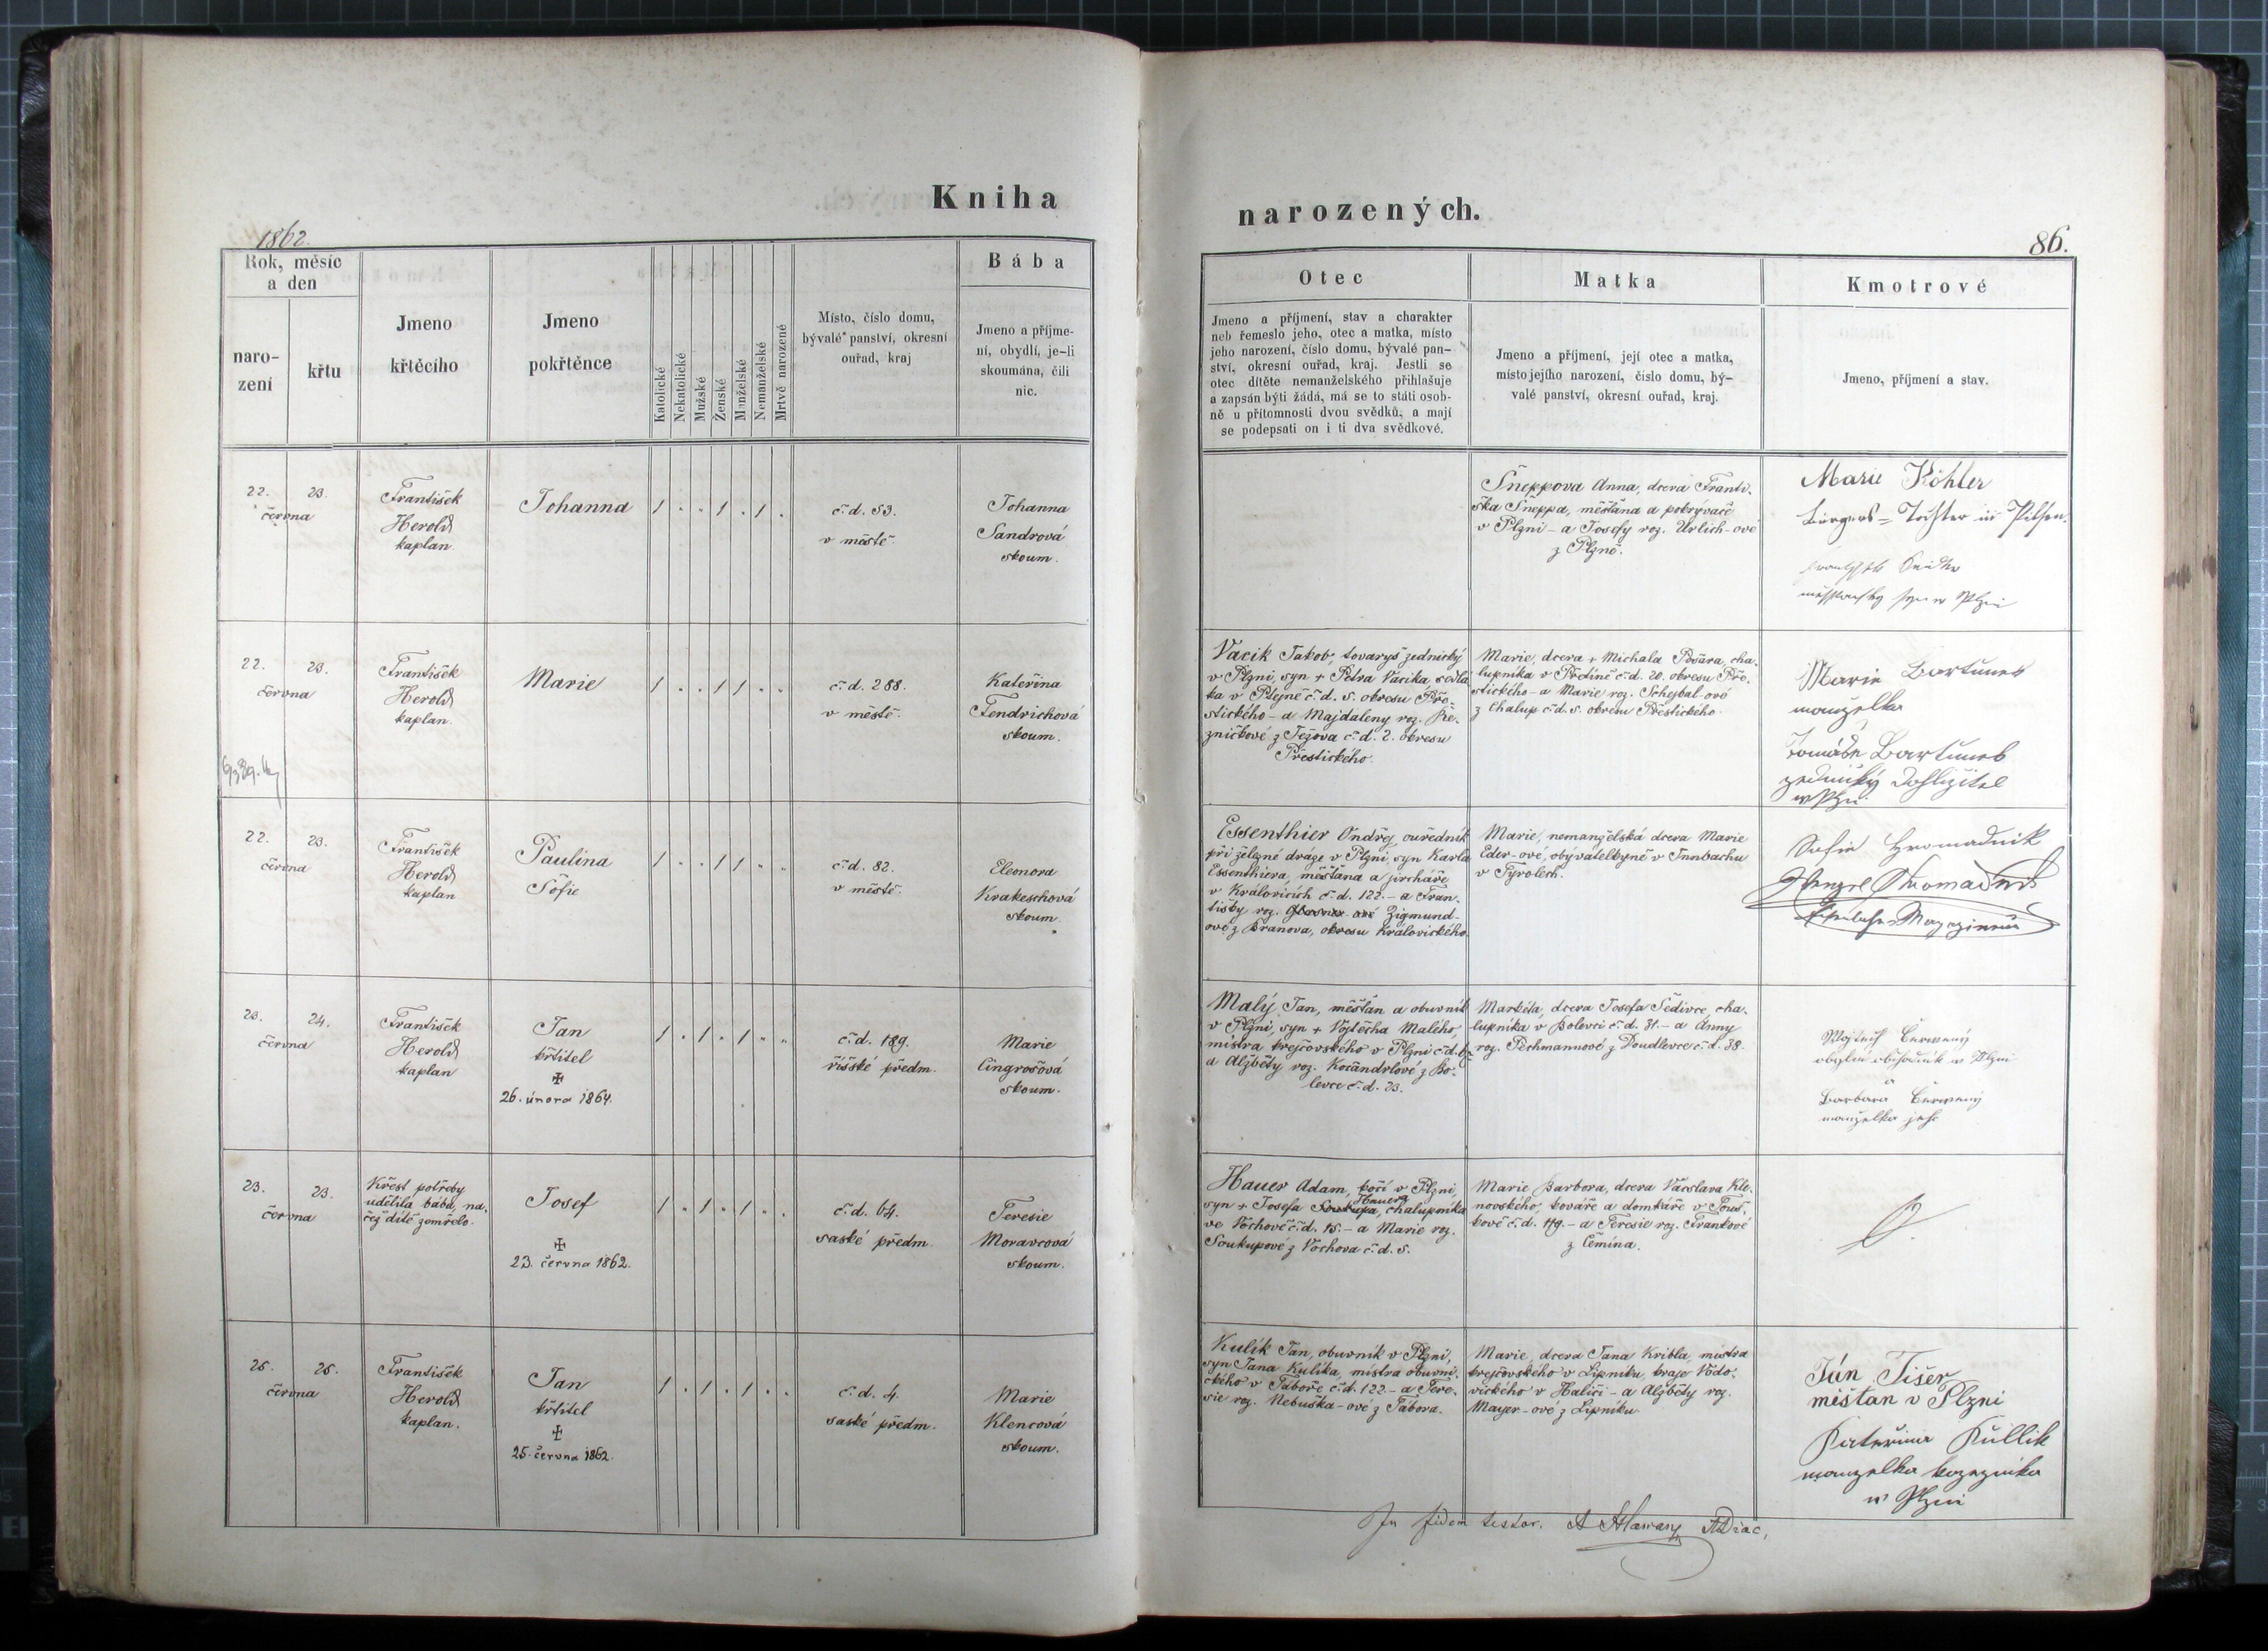 Kniha
1862.
Rok, měsíc
a den
naro-
zení
křtu
Jmeno
křtěcího
Jmeno
pokřtěnce
Katolické
Nekatolické
Mužské
Ženské
Manželské
Nemanželské
Mrtvě narozené
Místo, číslo domu,
bývalé panství, okresní
ouřad, kraj
Bába
Jmeno a příjme-
ní, obydlí, je-li
skoumána, čili
nic.
22. 23.
června
František
Herold
kaplan.
Johanna
1 . . 1 . 1 .
č. d. 53.
v městě.
Johanna
Sandrová
skoum.
22. 23.
června
František
Herold
kaplan.
Marie
1 . . 1 1 . .
č. d. 288.
v městě.
Kateřina
Fendrichová
skoum.
22. 23.
června
František
Herold
kaplan
Paulina
Sofie
1 . . 1 1 . .
č. d. 82.
v městě.
Eleonora
Krakeschová
skoum.
23. 24.
června
František
Herold
kaplan
Jan
křtitel
✠
26. února 1864.
1 . 1 . 1 . .
č. d. 189.
říšské předm.
Marie
Cingrošová
skoum.
23. 23.
června
Křest potřeby
udělila bába, na-
čež dítě zomřelo.
Josef
✠
23. června 1862.
1 . 1 . 1 . .
č. d. 64.
saské předm.
Teresie
Moravcová
skoum.
25. 25.
června
František
Herold
kaplan.
Jan
křtitel
✠
25. června 1862.
1 . 1 . 1 . .
č. d. 4.
saské předm.
Marie
Klencová
skoum.
narozených.
86.
Otec
Jmeno a příjmení, stav a charakter
neb řemeslo jeho, otec a matka, místo
jeho narození, číslo domu, bývalé pan-
ství, okresní ouřad, kraj. Jestli se
otec dítěte nemanželského přihlašuje
a zapsán býti žádá, má se to státi osob-
ně u přítomnosti dvou svědků, a mají
se podepsati on i ti dva svědkové.
Matka
Jmeno a příjmení, její otec a matka,
místo jejího narození, číslo domu, bý-
valé panství, okresní ouřad, kraj.
Kmotrové
Jmeno, příjmení a stav.
Šneppova Anna, dcera Franti-
ška Šneppa, měšťana a pokrývače
v Plzni - a Josefy roz. Urlich-ové
z Plzně.
Marie Köhler
Bürgers-Tochter in Pilsen.
syn w Plzni
Vacik Jakob, tovaryš zednický
v Plzni, syn + Petra Vacika, sedlá-
ka v č. d. 5. okresu Pře-
stického - a Majdaleny roz. Ře-
zníčkové z Ježova č. d. 2. okresu
Přestického.
Marie, dcera + Michala cha-
lupníka v č. d. 20. okresu Pře-
stického - a Marie roz. Schejbal-ové
z Chalup č. d. 5. okresu Přestického.
Marie Bartuněk
manželka
Tomáše Bartuněk
zednický
w Plzni
Essenthier Ondřej, ouředník
při železné dráze v Plzni, syn Karla
Essenthiera, měšťana a jircháře
v Královicích č. d. 122. - a Fran-
tišky roz. Zigmund-
ové z Branova, okresu Královického.
Marie, nemanželská dcera Marie
Eder-ové, obývatelkyně v Innbachu
v Tyrolích.
Sofie Hromadnik
Wenzel Hromadnik
Magazineur
Malý Jan, měšťan a obuvník
v Plzni, syn + Vojtěcha Malého,
mistra krejčovského v Plzni č. d.
a Alžběty roz. Kočandrlové z Bo-
levce č. d. 23.
Markéta, dcera Josefa Šedivce, cha-
lupníka v Bolevci č. d. 31. - a Anny
roz. Pechmannové z Doudlevce č. d. 38.
Wojtěch Červený
obchodník w Plzni
Barbara Červený
manželka jeho
Hauer Adam, kočí v Plzni,
Hauera
syn + Josefa Soukupa, chalupníka
ve Vochově č. d. 15. - a Marie roz.
Soukupové z Vochova č. d. 5.
Marie Barbora, dcera Václava Kle-
novského, kováře a domkáře v Touš-
kově č. d. 179. - a Teresie roz. Frankové
z Čemina.
Kulík Jan, obuvník v Plzni,
syn Jana Kulíka, mistra obuvni-
ckého v Táboře č. d. 122. - a Tere-
sie roz. Nebuška-ové z Tábora.
Marie, dcera Jana Kribla, mistra
krejčovského v Lipníku, kraje Vado-
vického v Haliči - a Alžběty roz.
Mayer-ové z Lipníku.
Ján Tišer
měšťan v Plzni
Kateřina Kullik
manželka
w Plzni
In fidem testor. A Hlawan ADiac.